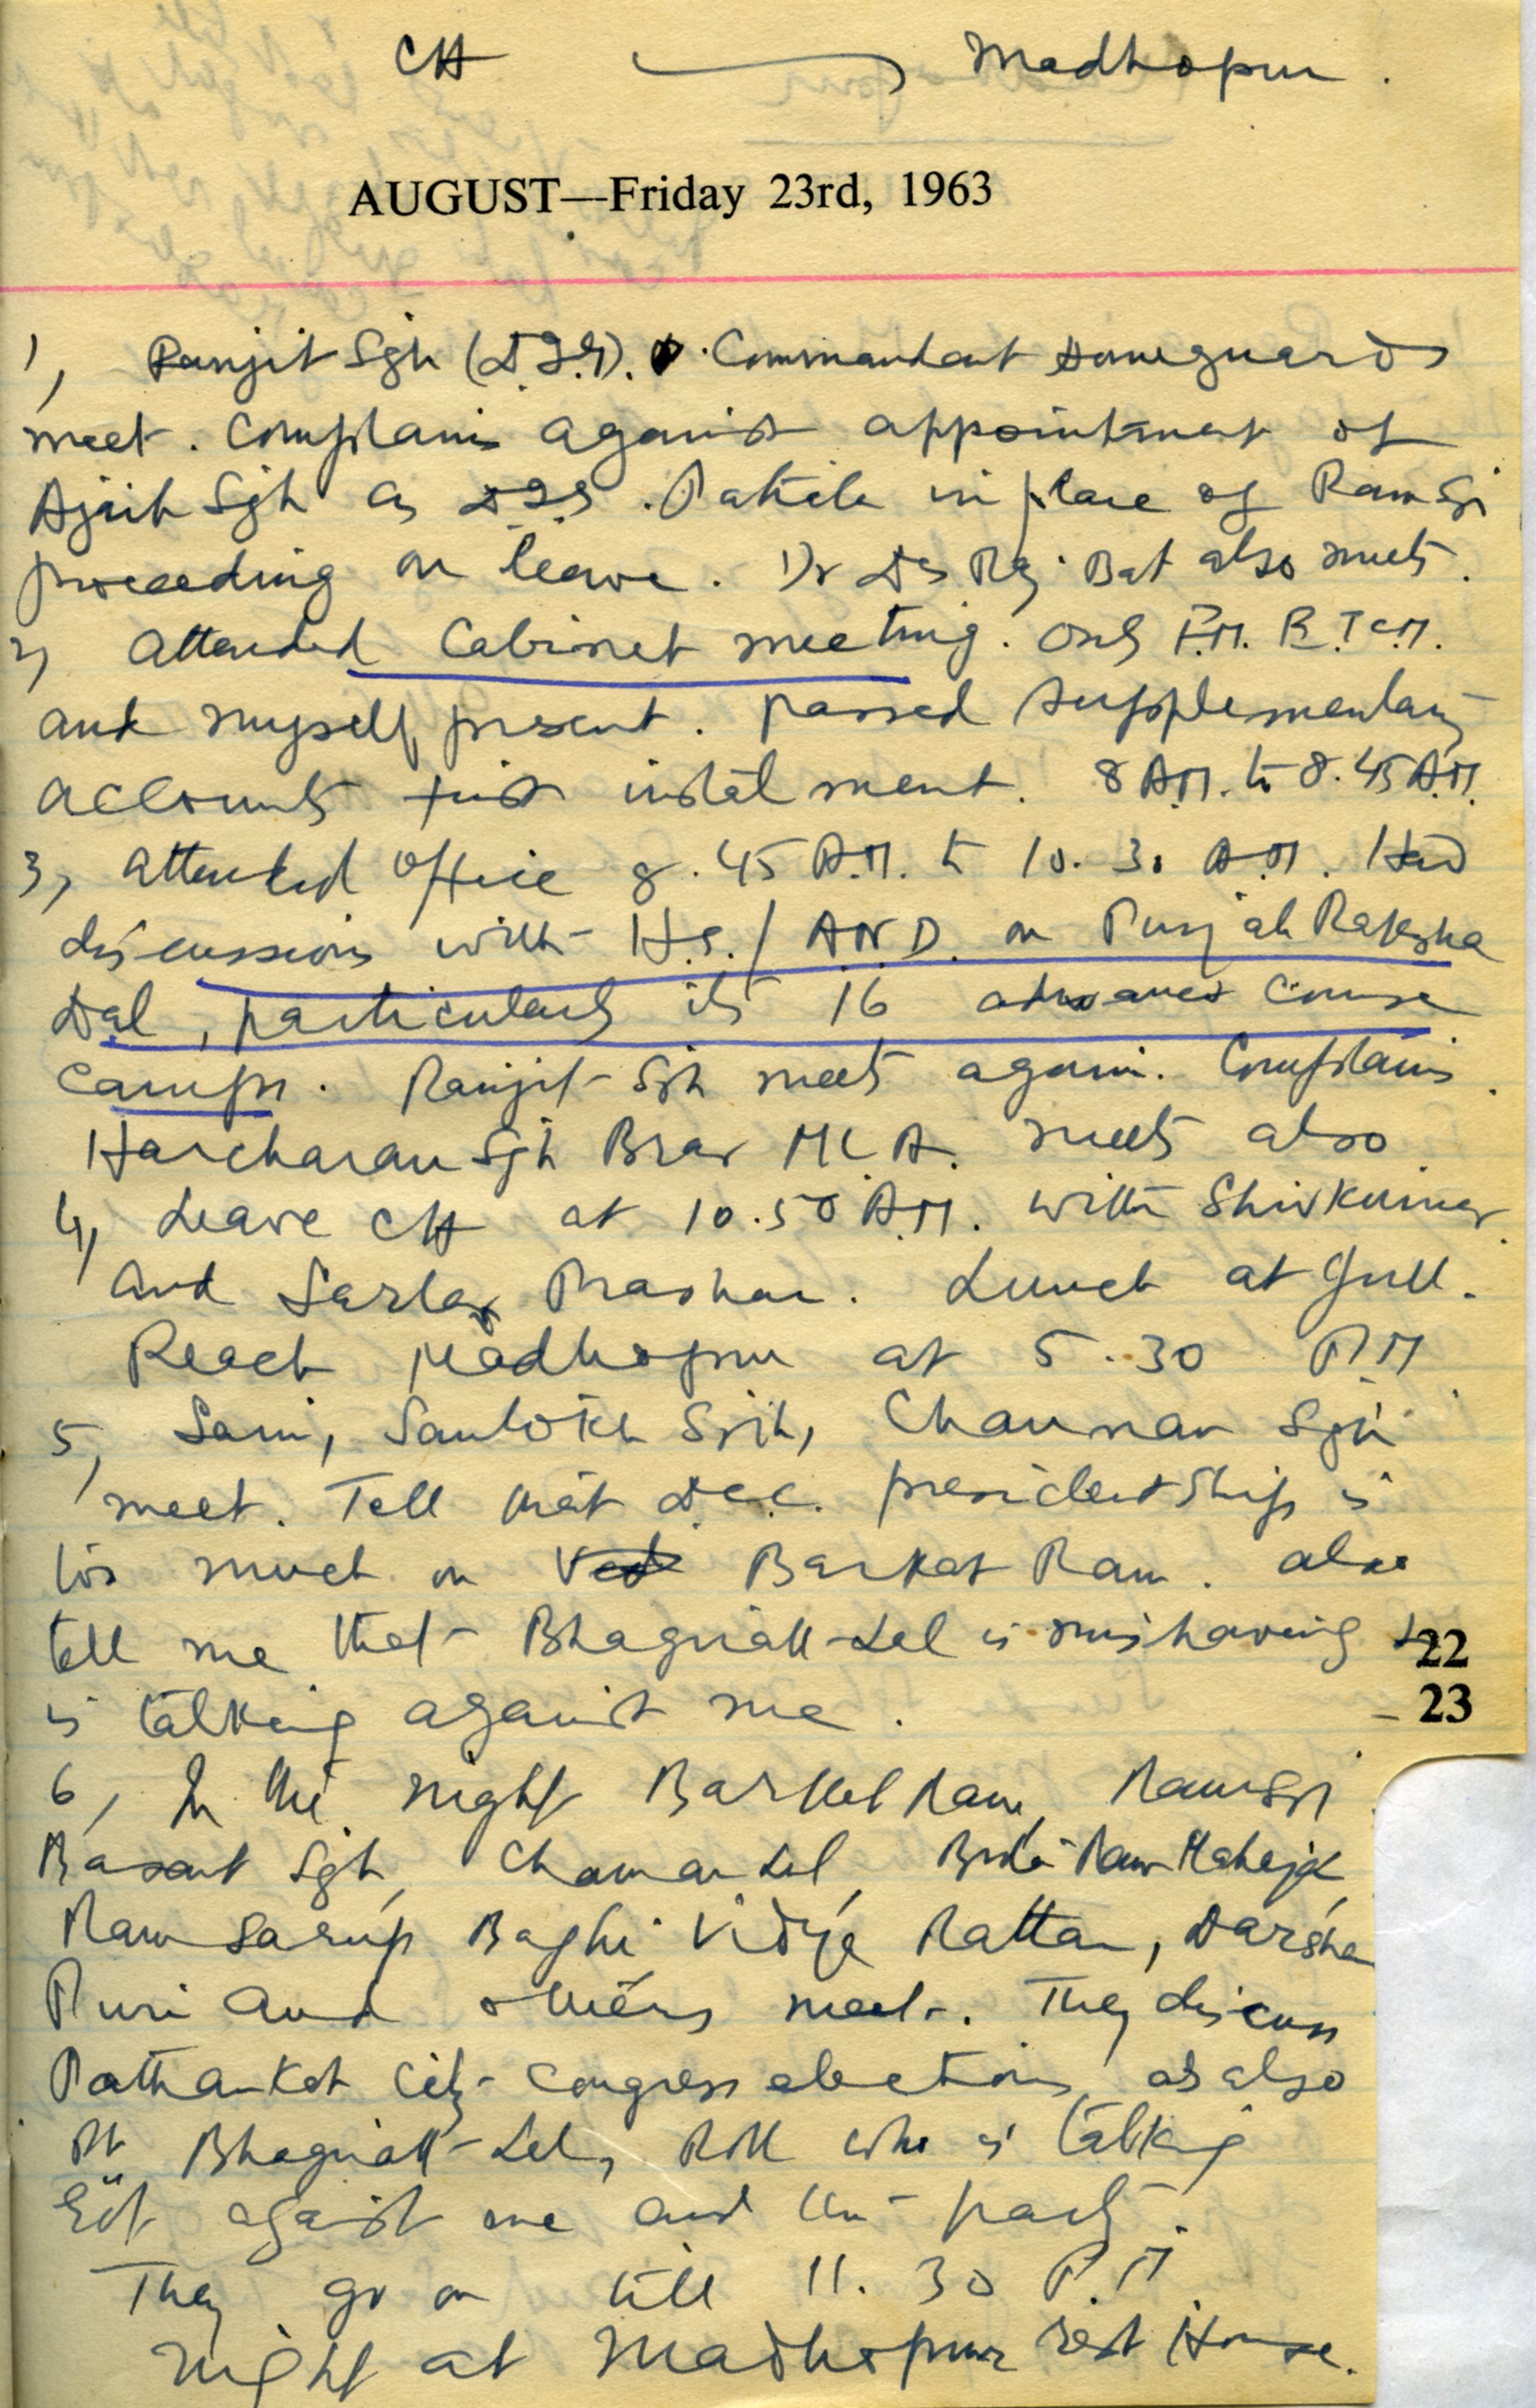 CH → Madhopur.
AUGUST—Friday 23rd, 1963
1, Ranjit Sgh (D.I.G). Commandant Homeguards
meet. Complain against appointment of
Ajit Sgh as DIG. Patiala in place of Ram Sgh
proceeding on leave. Dr Des Raj Bat also meets.
2, Attended Cabinet meeting. Only F.M. R.T.C.M.
and myself present. passed supplementary
accounts first instalment. 8 A.M. to 8.45 A.M.
3, Attended office 8.45 A.M. to 10.30 A.M. Had
discussions with H.S./A.N.D. on Punjab Raksha
Dal, particularly its 16 advance course
camps. Ranjit Sgh meets again. Complains.
Harcharan Sgh Brar MLA. meets also
4, Leave CH at 10.50 A.M. with Shivkumar
and Sarla Prashar. Lunch at Jull.
Reach Madhopur at 5.30 P.M
5, Saini, Santokh Sgh, Chaunan Sgh
meet. Tell that D.C.C. presidentship is
too much on Barkat Ram. also
tell me that Bhaguath Lal is mishaving &
is talking against me.
22
23
6, In the night Barkat Ram, Ram Sgh
Basant Sgh, Chaman Lal, Ram Mahajan
Ram Sarup Baghi Vidya Rattan, Darshan
Puri and others meet. They discuss
Pathankot City Congress elections, as also
Pt Bhaguath Lal, who is talking
against me and the party.
They go on till 11.30 P.M
Night at Madhopur rest House.